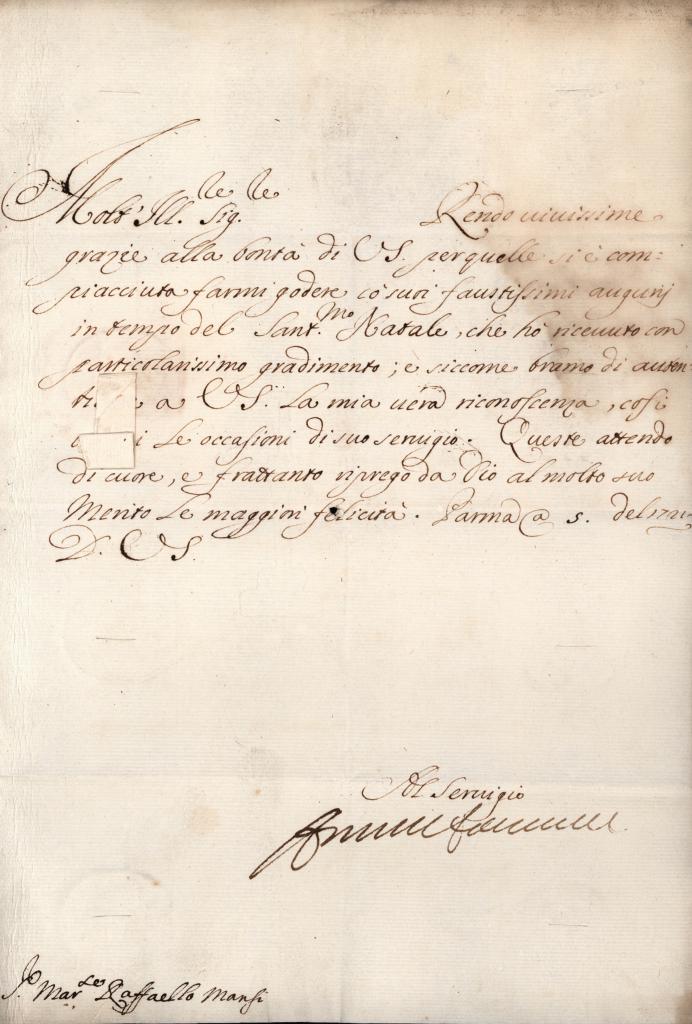 Molt' Ill.re Sig.re Rendo vivissime
grazie alla bontà di VS. per quelle si è com=
piacciuta farmi godere co' suoi faustissimi augurj
in tempo del Sant.mo Natale, che hò ricevuto con
particolarissimo gradimento; e siccome bramo di auten-
a VS. la mia vera riconoscenza, così
le occasioni di suo servigio. Queste attendo
di cuore, e frattanto riprego da Dio al molto suo
Merito le maggiori felicità. Parma a 5. del
D. VS.
Al Servigio
Mar.se Raffaello Mansi